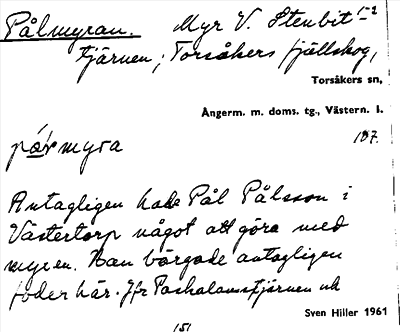 Pålmyran. Myr V. Stenbit-
tjärnen, Torsåkers fjällskog,
Torsåkers sn,
Ångerm. m. doms. tg., Västern. l.
107.
myra
Antagligen hade Pål Pålsson i
Västertorp något att göra med
myren. Han bärgade antagligen
foder här. Jfr
Sven Hiller 1961
151